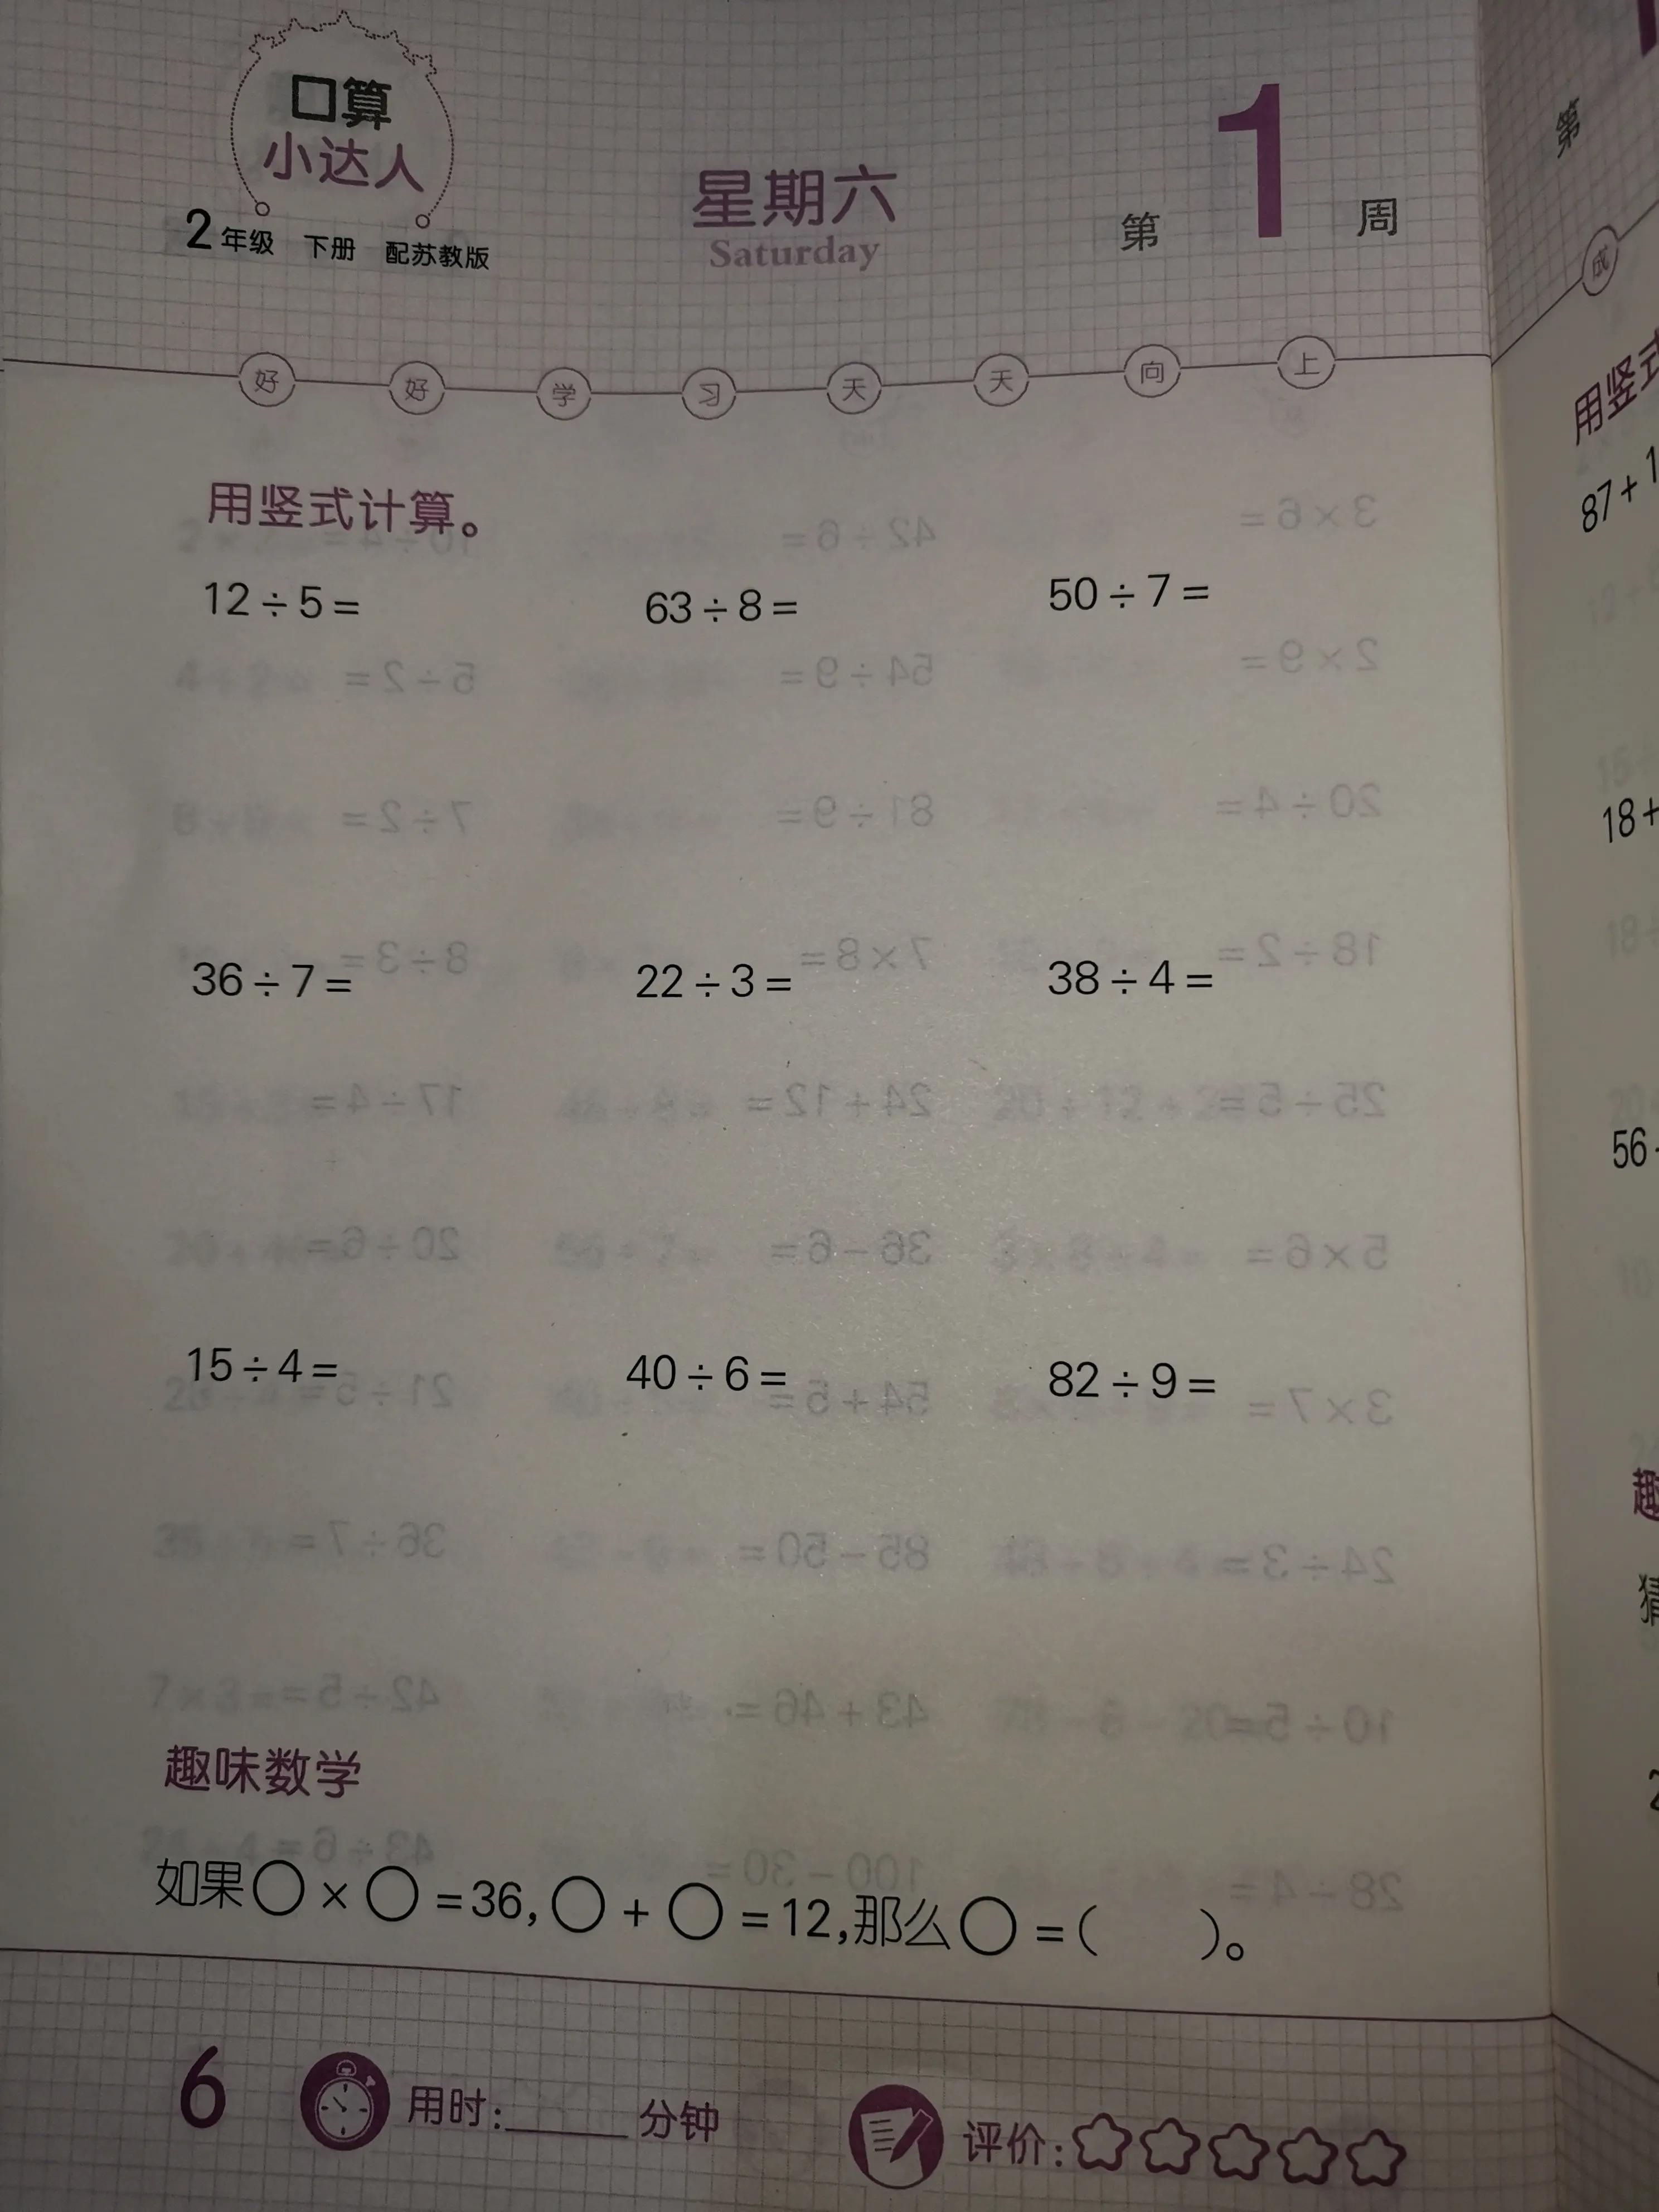 口算
小达人
2年级 下册 配苏教版
星期六
Saturday
第1周
好好学习天天向上
用竖式计算。
12÷5= 63÷8= 50÷7=
36÷7= 22÷3= 38÷4=
15÷4= 40÷6= 82÷9=
趣味数学
如果○×○=36,○+○=12,那么○=( )。
6 用时:_____分钟 评价:☆☆☆☆☆
第
成
用竖式
87+1
18+
56
趣
猜
2